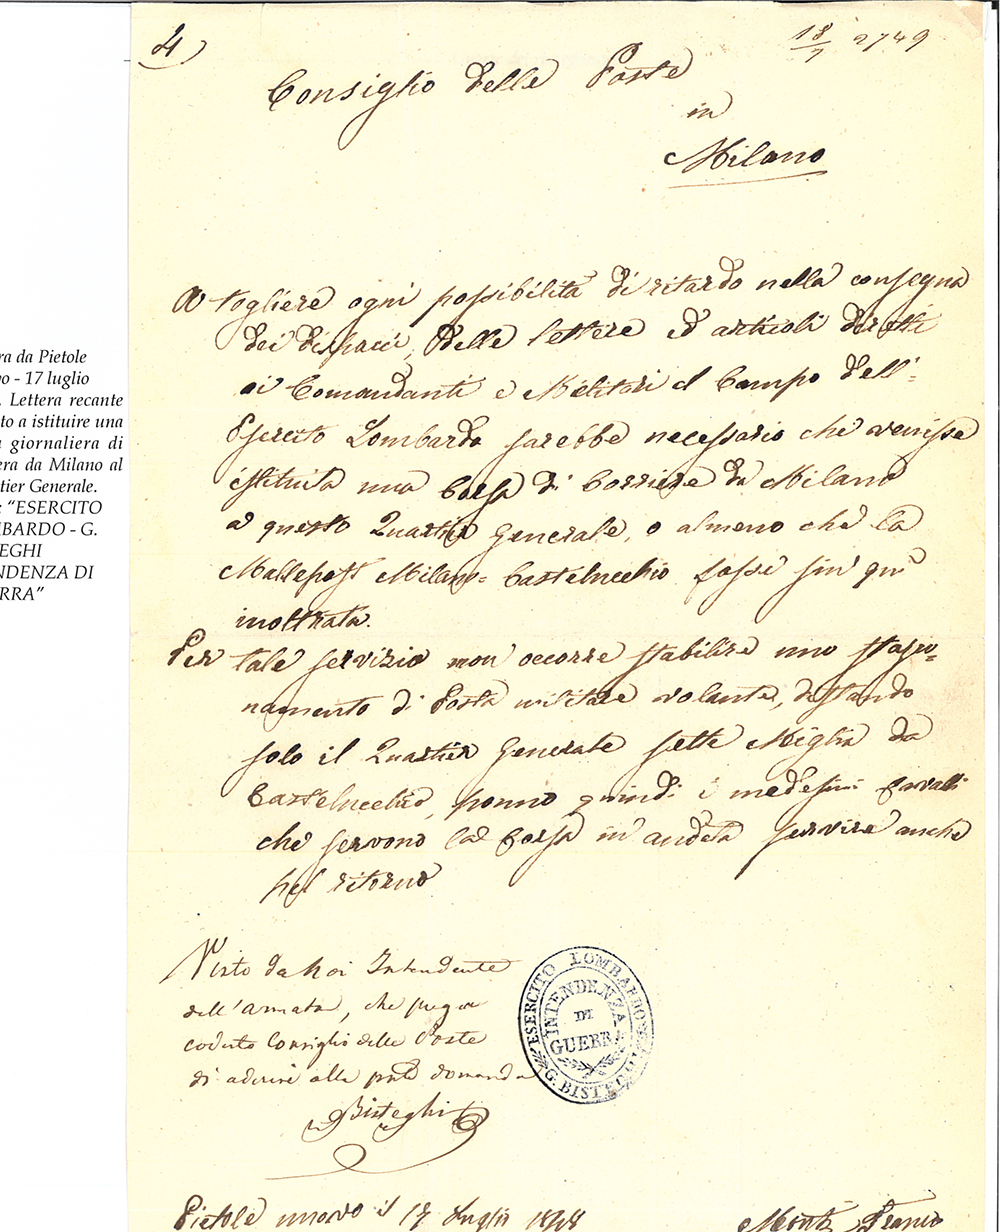 4)
18/7 2749
Consiglio delle Poste
in
Milano
A togliere ogni possibilità di ritardo nella consegna
dei dispacci, delle lettere ed articoli diretti
ai Comandanti e Militari al Campo dell'
Esercito Lombardo sarebbe necessario che venisse
istituita una Corsa di Corriere da Milano
a questo Quartier Generale, o almeno che la
Mallepost Milano-Castelucchio fosse sin qui
inoltrata.
Per tale servizio non occorre stabilire uno stazio-
namento di Posta militare volante, distando
solo il Quartier Generale sette Miglia da
Castelucchio, ponno quindi i medesimi Cavalli
che servono la Corsa in andata servire anche
pel ritorno
Visto da Noi Intendente
dell'Armata, che prega
codesto Consiglio delle Poste
di aderire alla pnte domanda
Bisteghi
ESERCITO LOMBARDO
INTENDENZA
DI
GUERRA
G. BISTEGHI
Pietole nuovo il 17 Luglio 1848
Monti Franco
ra da Pietole
o - 17 luglio
. Lettera recante
to a istituire una
giornaliera di
era da Milano al
tier Generale.
: "ESERCITO
MBARDO - G.
EGHI
NDENZA DI
RRA"